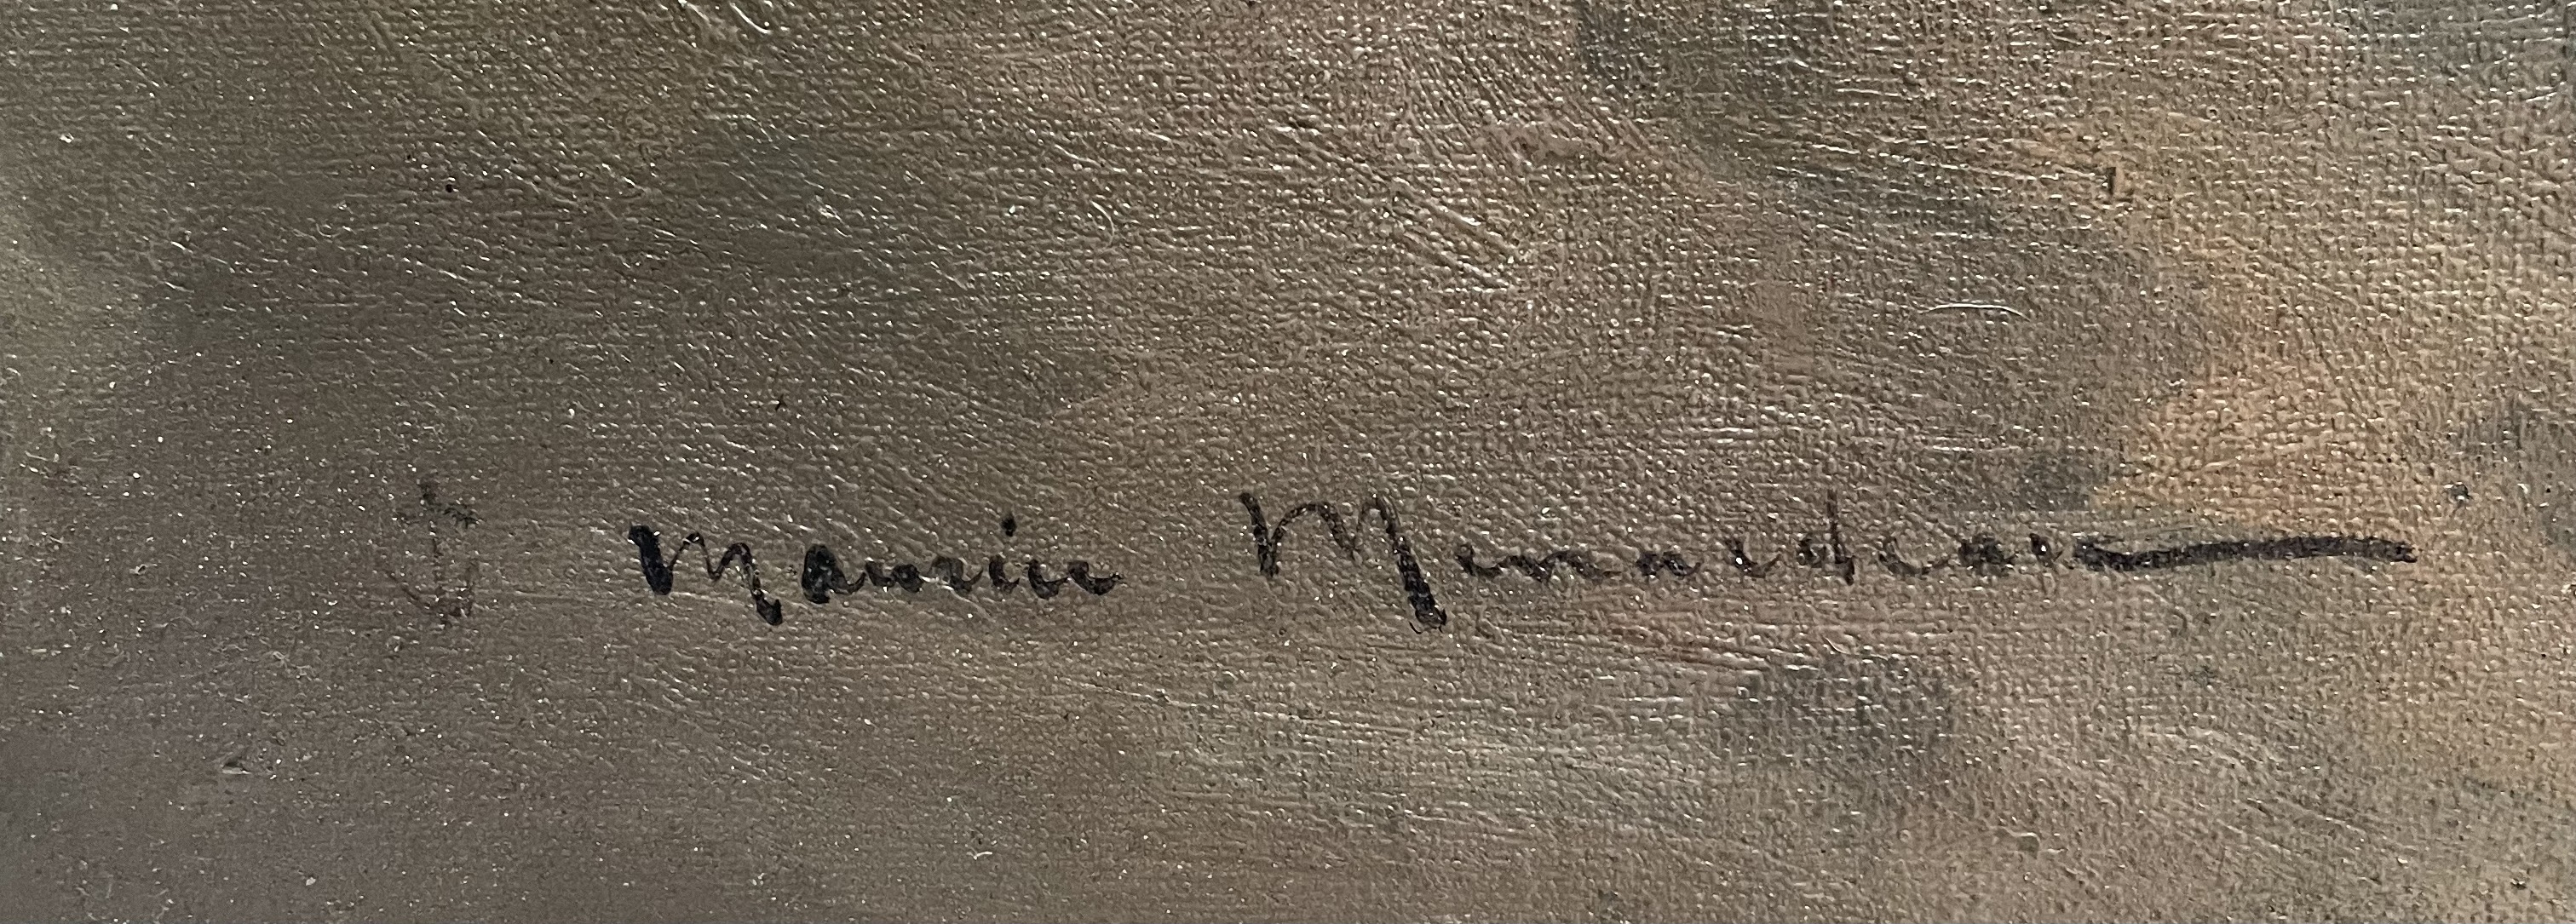 Maurice Menardeau